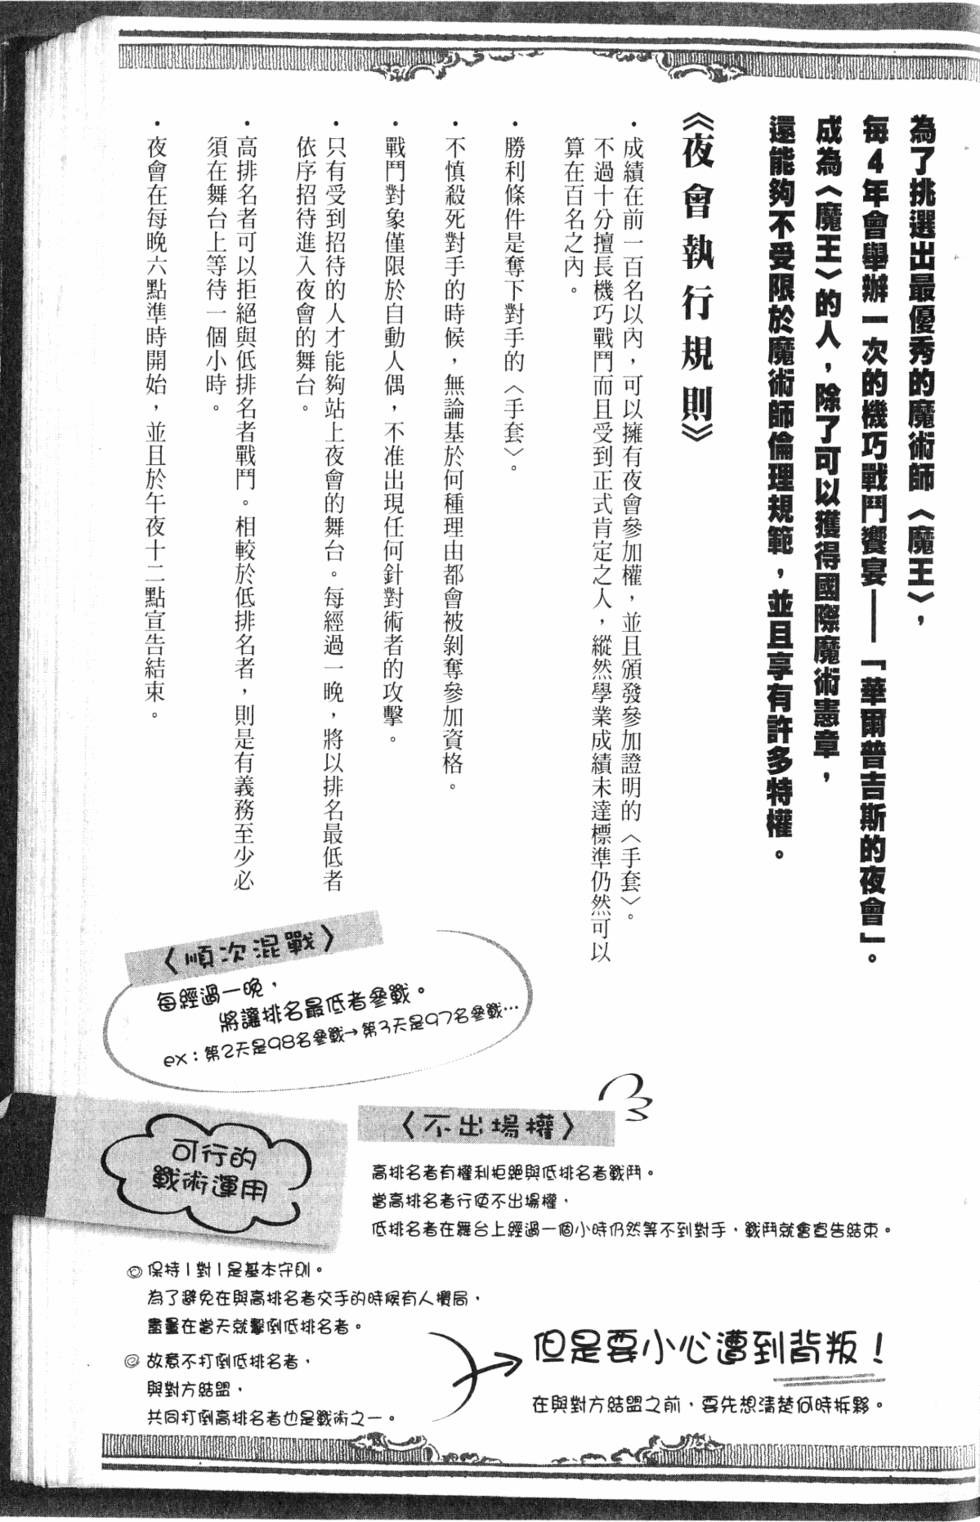 為了挑選出最優秀的魔術師〈魔王〉，
每4年會舉辦一次的機巧戰鬥饗宴——「華爾普吉斯的夜會」。
成為〈魔王〉的人，除了可以獲得國際魔術憲章，
還能夠不受限於魔術師倫理規範，並且享有許多特權。
《夜會執行規則》
・成績在前一百名以內，可以擁有夜會參加權，並且頒發參加證明的〈手套〉。
不過十分擅長機巧戰鬥而且受到正式肯定之人，縱然學業成績未達標準仍然可以
算在百名之內。
・勝利條件是奪下對手的〈手套〉。
・不慎殺死對手的時候，無論基於何種理由都會被剝奪參加資格。
・戰鬥對象僅限於自動人偶，不准出現任何針對術者的攻擊。
・只有受到招待的人才能夠站上夜會的舞台。每經過一晚，將以排名最低者
依序招待進入夜會的舞台。
・高排名者可以拒絕與低排名者戰鬥。相較於低排名者，則是有義務至少必
須在舞台上等待一個小時。
・夜會在每晚六點準時開始，並且於午夜十二點宣告結束。
〈順次混戰〉
每經過一晚，
將讓排名最低者參戰。
ex：第2天是98名參戰→第3天是97名參戰…
〈不出場權〉
高排名者有權利拒絕與低排名者戰鬥。
當高排名者行使不出場權，
低排名者在舞台上經過一個小時仍然等不到對手，戰鬥就會宣告結束。
可行的
戰術運用
◎保持1對1是基本守則。
為了避免在與高排名者交手的時候有人攪局，
盡量在當天就擊倒低排名者。
◎故意不打倒低排名者，
與對方結盟，
共同打倒高排名者也是戰術之一。
但是要小心遭到背叛！
在與對方結盟之前，要先想清楚何時拆夥。